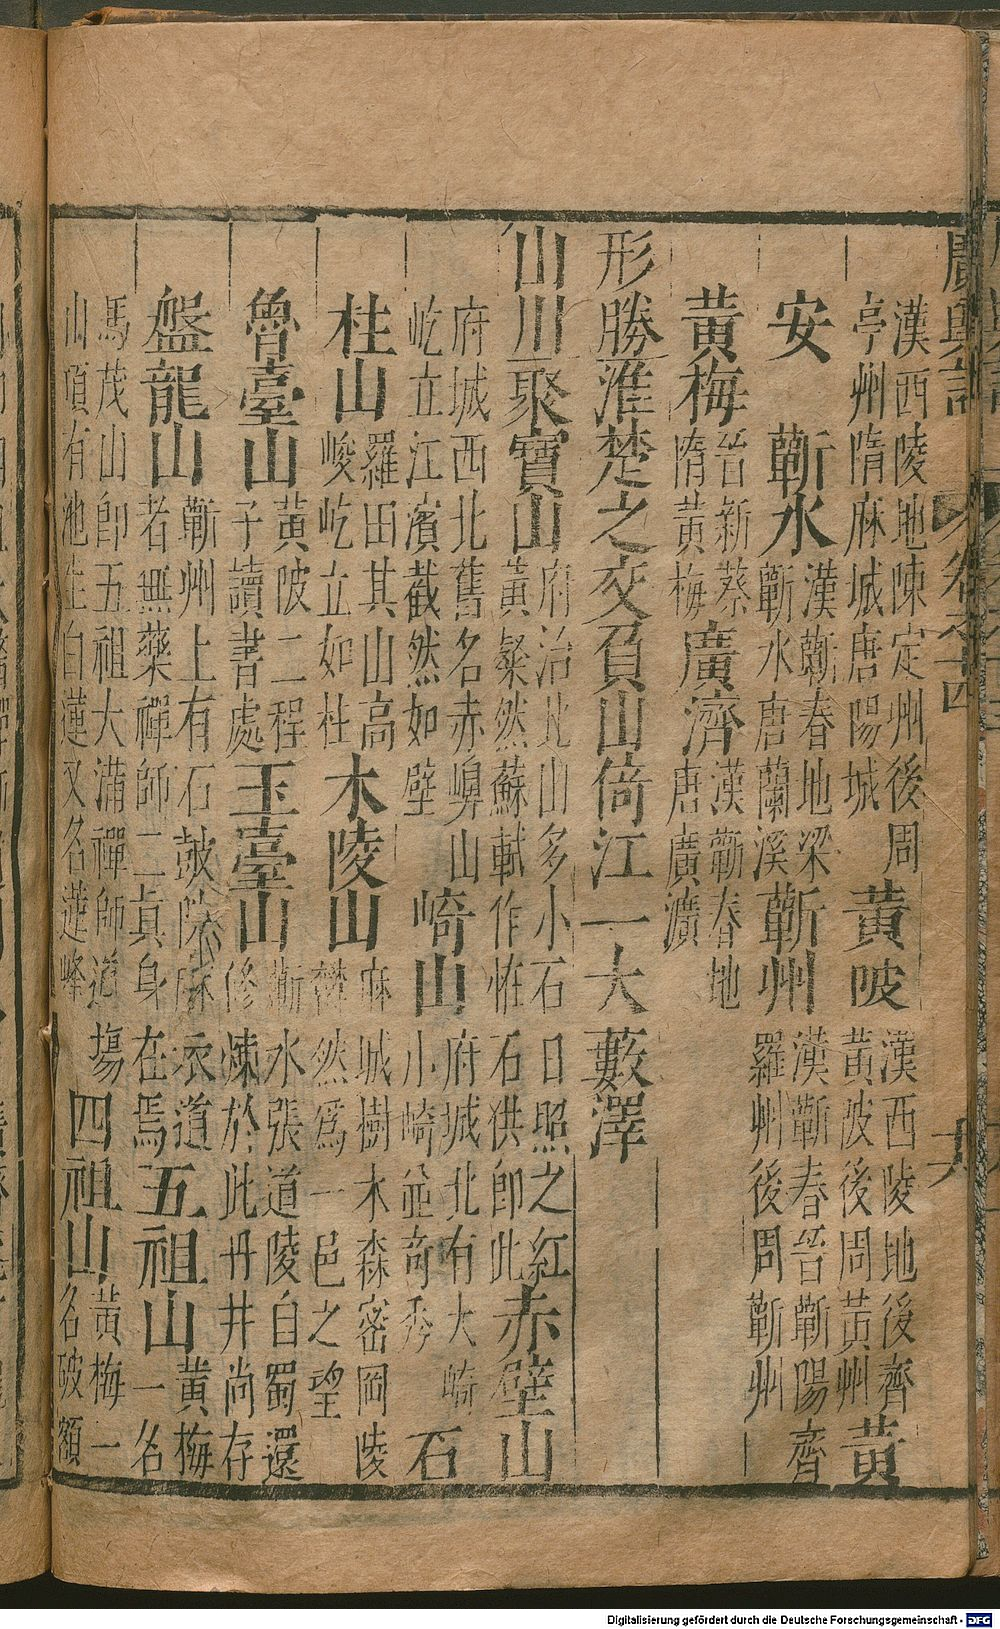 廣輿記 卷之十四
漢西陵地陳定州後周亭州隋麻城唐陽城 黃陂 漢西陵地後齊黃陂後周黃州 黃
安 蘄水 漢蘄春地梁蘄水唐蘭溪 蘄州 漢蘄春晉蘄陽齊羅州後周蘄州
黃梅 晉新蔡隋黃梅 廣濟 漢蘄春地唐廣濟
形勝 淮楚之交負山倚江一大藪澤
山川 聚寶山 府治北山多小石日照之紅黃粲然蘇軾作怪石供即此 赤壁山
府城西北舊名赤山屹立江濱截然如壁 崎山 府城北有大崎小崎並奇秀 石
柱山 羅田其山高峻屹立如柱 木陵山 麻城樹木森密岡陵欝然爲一邑之望
魯臺山 黃陂二程子讀書處 玉臺山 蘄水張道陵自蜀還修煉於此丹井尚存
盤龍山 蘄州上有石鼓麻衣道者無藥禪師二真身在焉 五祖山 黃梅一名
馮茂山即五祖大滿禪師道塲山頂有池生白蓮又名蓮峰 四祖山 黃梅一名破額
Digitalisierung gefördert durch die Deutsche Forschungsgemeinschaft - DFG